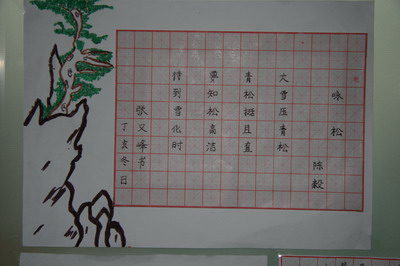 咏松
陈毅
大雪压青松
青松挺且直
要知松高洁
待到雪化时
张又峰书
丁亥冬日